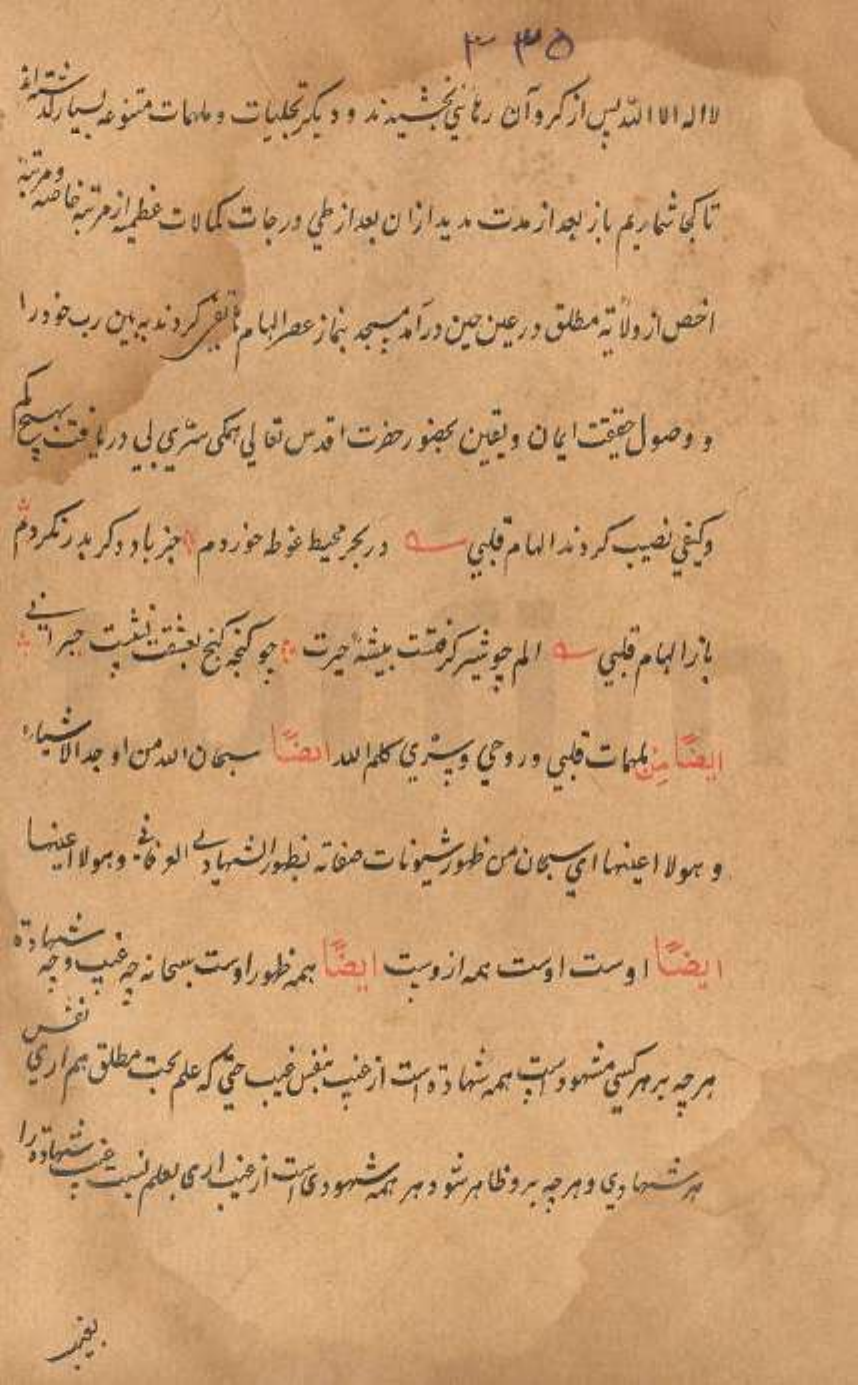 ۳۳۵
لا اله الا الله پس از کروآن رهائی بخشیدند و دیکر تجلیات و ملهمات متنوعه بسیار
تا کجا شماریم باز بعد از مدت مدید ازان بعد از طی درجات کمالات عظیمه از مرتبه خاصه و مرتبهٔ
اخص از ولایة مطلق در عین حین درآمد مسجد بنماز عصر الهام کردند ببین رب خود را
و وصول حقیقت ایمان و یقین بحضور حضرت اقدس تعالی همکی سرّی بی دریافت
وکیفی نصیب کردند الهام قلبی در بحر محیط غوطه خوردم جز باد وکر
باز الهام قلبی الم چو شیر کرفتست بیشهٔ حیرت چو کنجه کنج بعشقت
ایضًا مِن ملهمات قلبی وروحی وسرّی کلم الله ایضًا سبحان الله من اوجد الاشیاء
و هو لا اعینها ای سبحان من ظهور شیونات صفاته بظهور الشهادی و هو لا اعینها
ایضًا اوست اوست همه ازوست ایضًا همه ظهور اوست سبحانه چه غیب و چه شهادة
هر چه بر هر کسی مشهود است همه شهادة است از غیب بنفس غیب حتی که علم بحت مطلق هم اری نفس
هر شهادی و هر چه برو ظاهر شود هر همه شهودی است از غیب اری بعلم نسبت غیب شهادة را